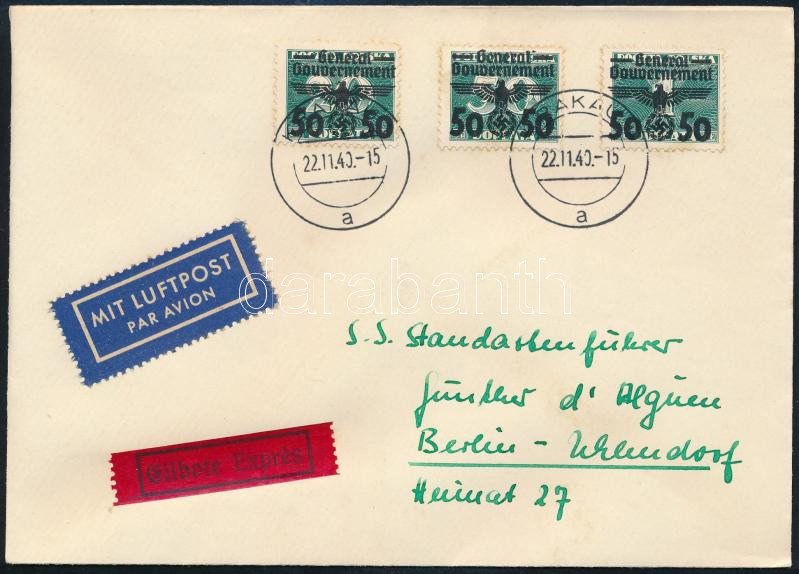 General
Gouvernement
50 50
General
Gouvernement
50 50
General
Gouvernement
50 50
22.11.40.-15
a
KRAKAU
22.11.40.-15
a
MIT LUFTPOST
PAR AVION
darabanth
S.S. Standartenführer
Günther d'Alquen
Berlin - Uhlendorf
Heimat 27
Eilbote Exprès